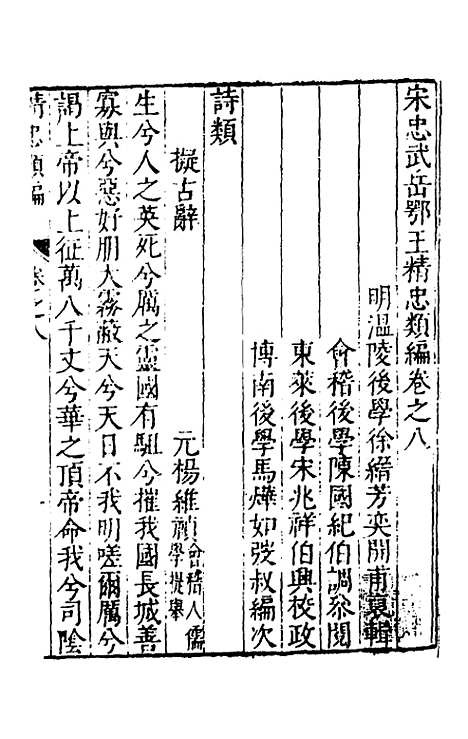 宋忠武岳鄂王精忠類編卷之八
明溫陵後學徐縉芳奕開甫裒輯
會稽後學陳國紀伯調叅閱
東萊後學宋兆祥伯興校政
博南後學馬燁如弢叔編次
詩類
擬古辭 元楊維禎會稽人儒學提舉
生兮人之英死兮厲之靈國有駔兮摧我國長城善
寡與兮惡好朋大霧蔽天兮天日不我明嗟爾厲兮
謁上帝以上征萬八千丈兮華之頂帝命我兮司陰
精忠類編 卷之八